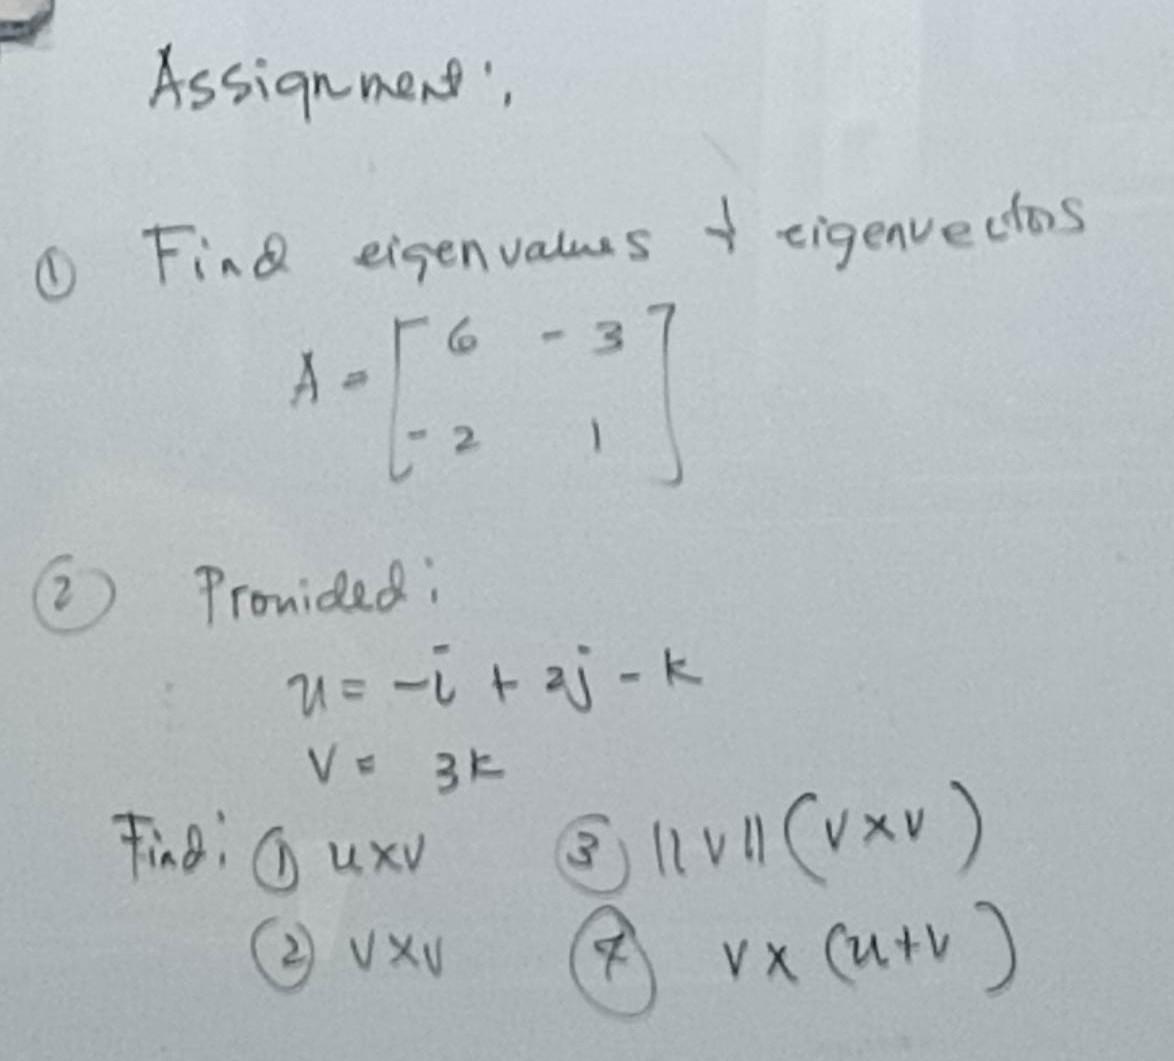 Assignment:
① Find eigenvalues & eigenvectors
A = [ 6 - 3
- 2 1 ]
② Provided:
u = -i + 2j - k
v = 3k
Find: ① u×v ③ ||v|| (v×v)
② v×v ④ v × (u+v)